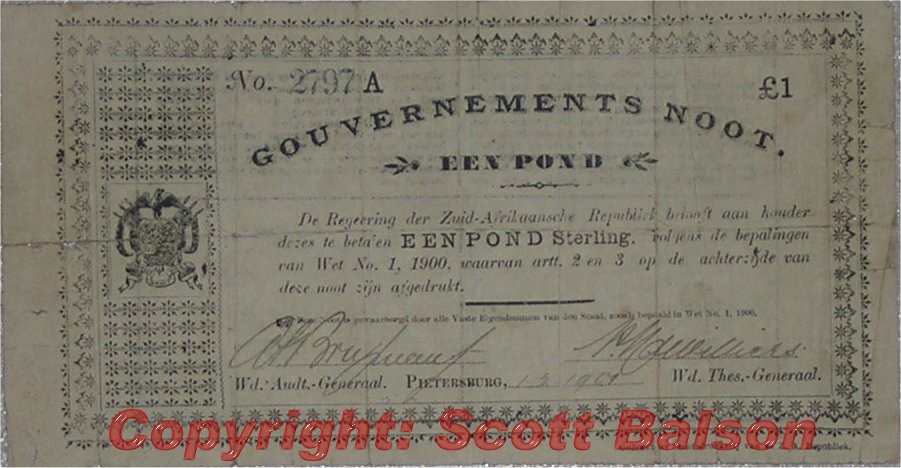 No. 2797 A £1
GOUVERNEMENTS NOOT.
EEN POND
De Regeering der Zuid-Afrikaansche Republiek belooft aan houder
dezes te betalen EEN POND Sterling, volgens de bepalingen
van Wet No. 1, 1900, waarvan artt. 2 en 3 op de achterzijde van
deze noot zijn afgedrukt.
gewaarborgd door alle Vaste Eigendommen van den Staat, zooals bepaald in Wet No. 1, 1900.
Wd. Audt.-Generaal. PIETERSBURG, 1901 Wd. Thes.-Generaal.
Copyright: Scott Balson